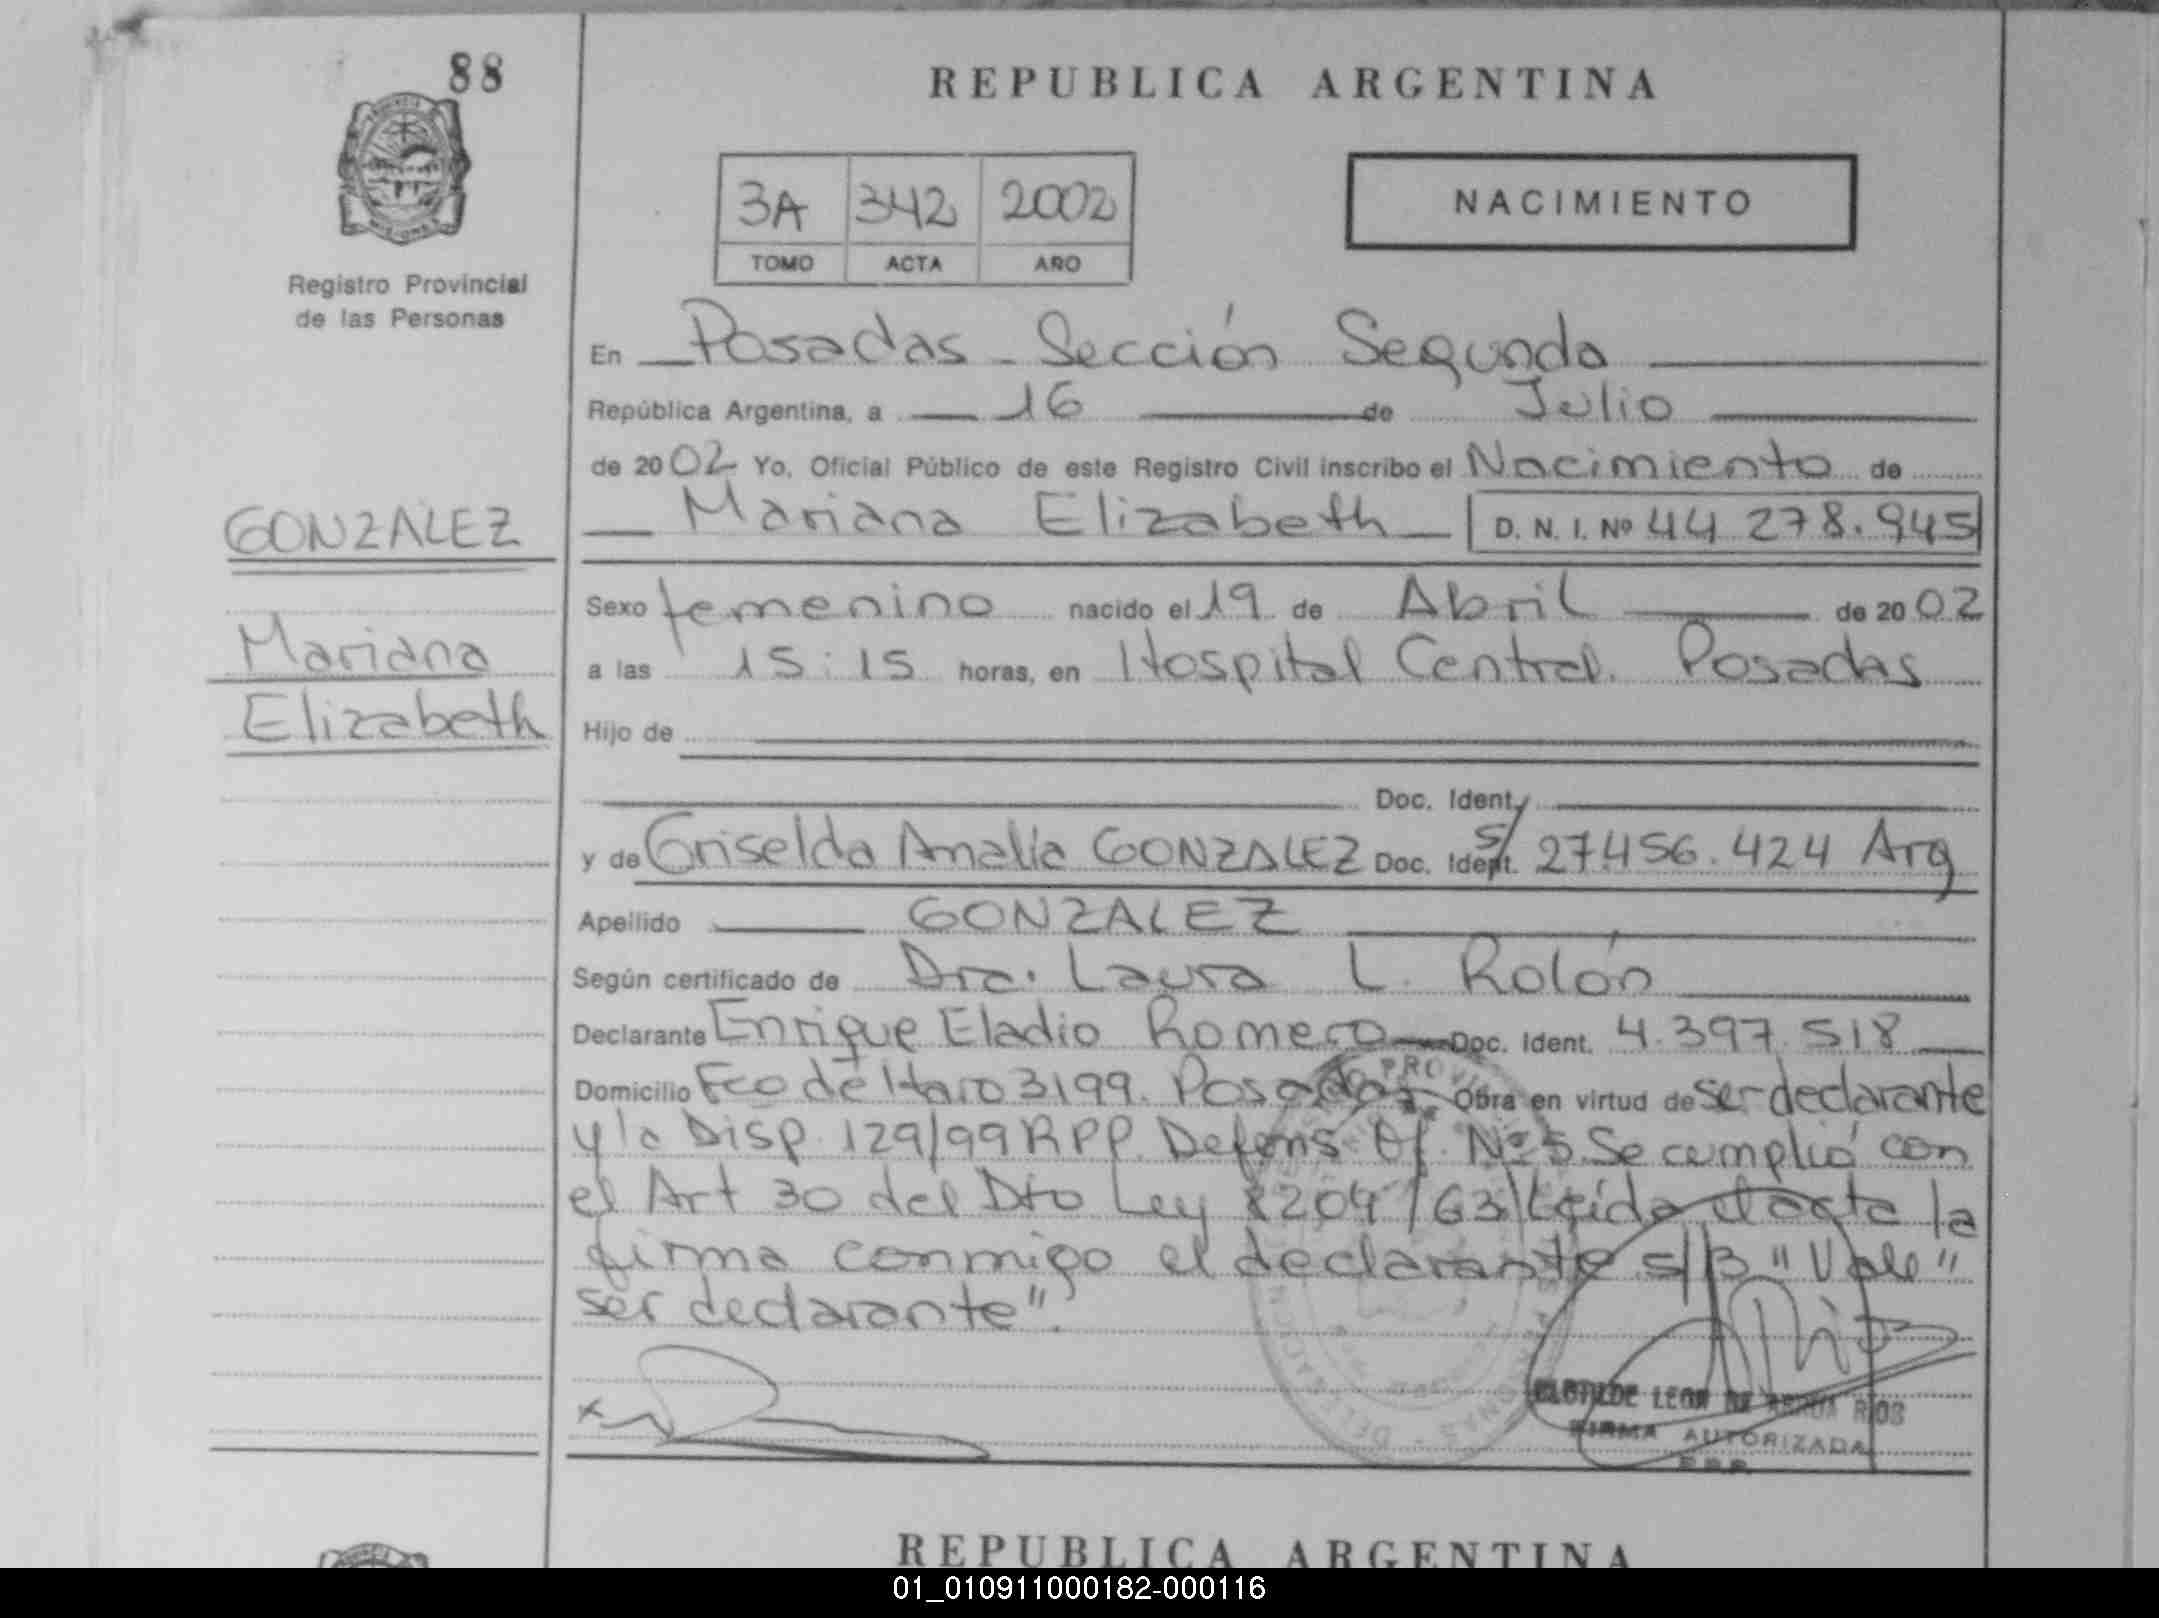 88
REPUBLICA ARGENTINA
3A 342 2002
TOMO ACTA AÑO
NACIMIENTO
Registro Provincial
de las Personas
En Posadas - Sección Segunda
República Argentina, a 16 de Julio
de 2002 Yo, Oficial Público de este Registro Civil inscribo el Nacimiento de
Mariana Elizabeth D. N. I. Nº 44 278.945
GONZALEZ
Mariana
Elizabeth
Sexo femenino nacido el 19 de Abril de 2002
a las 15:15 horas, en Hospital Central. Posadas
Hijo de
Doc. Ident.
y de Griselda Amalia GONZALEZ Doc. Ident. s/ 27.456.424 Arg
Apellido GONZALEZ
Según certificado de Dra. Laura L. Rolón
Declarante Enrique Eladio Romero Doc. Ident. 4.397.518
Domicilio Fco de Haro 3199. Posadas Obra en virtud de ser declarante
y la Disp. 129/99 RPP. Defens. Of. Nº 5 Se cumplió con
el Art 30 del Dto Ley 8204/63 Leída el acta la
firma conmigo el declarante s/B "Vale"
ser declarante".
LEON DE RIOS
FIRMA AUTORIZADA
REPUBLICA ARGENTINA
01_010911000182-000116